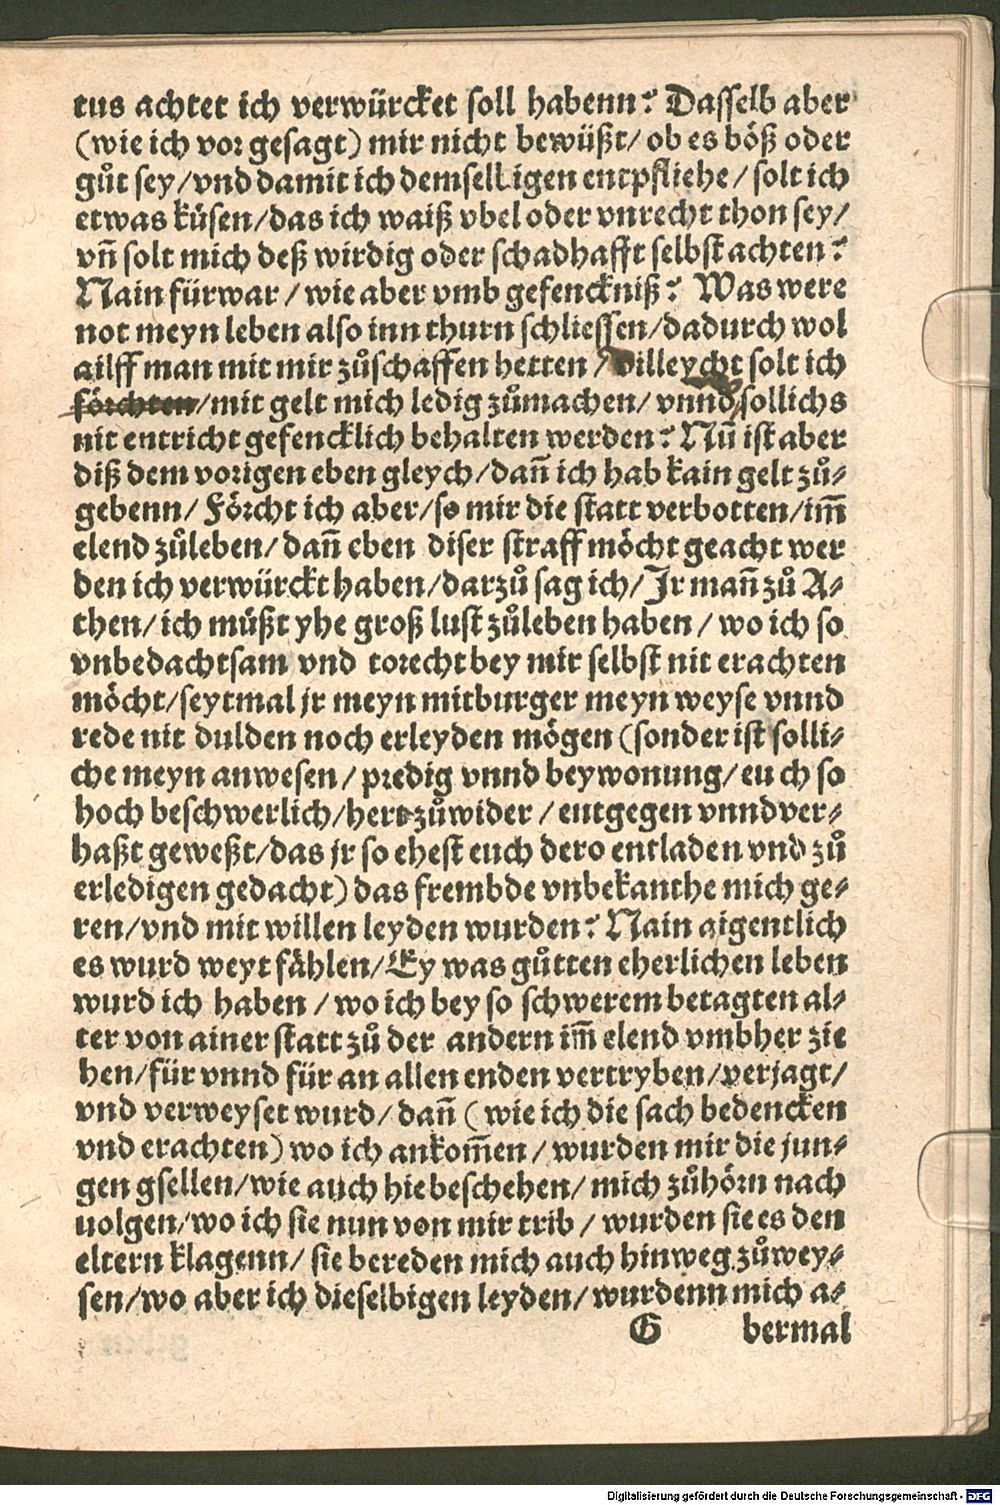 tus achtet ich verwürcket soll habenn? Dasselb aber
(wie ich vor gesagt) mir nicht bewüßt/ ob es böß oder
gůt sey/vnd damit ich demselligen entpfliehe/ solt ich
etwas küsen/das ich waiß vbel oder vnrecht thon sey/
vn̄ solt mich deß wirdig oder schadhafft selbst achten?
Nain fürwar / wie aber vmb gefencknüß? Was were
not meyn leben also inn thurn schliessen/dadurch wol
ailff man mit mir zůschaffen hetten / villeycht solt ich
förchten/mit gelt mich ledig zůmachen/ vnnd sollichs
nit entricht gefencklich behalten werden? Nū ist aber
diß dem vorigen eben gleych/dan̄ ich hab kain gelt zů-
gebenn/ Förcht ich aber/so mir die statt verbotten/im̄
elend zůleben/ dan̄ eben diser straff möcht geacht wer
den ich verwürckt haben/darzů sag ich/ Jr man̄ zů A-
then/ ich müßt yhe groß lust zůleben haben / wo ich so
vnbedachtsam vnd torecht bey mir selbst nit erachten
möcht/seytmal jr meyn mitburger meyn weyse vnnd
rede nit dulden noch erleyden mögen (sonder ist solli-
che meyn anwesen / predig vnnd beywonung/ eu ch so
hoch beschwerlich/hertzůwider / entgegen vnnd ver-
haßt geweßt/das jr so ehest euch dero entladen vnd zů
erledigen gedacht) das frembde vnbekanthe mich ge-
ren/vnd mit willen leyden wurden? Nain aigentlich
es wurd weyt fählen/Ey was gůtten eherlichen leben
wurd ich haben / wo ich bey so schwerem betagten al-
ter von ainer statt zů der andern im̄ elend vmbher zie
hen/für vnnd für an allen enden vertryben/verjagt/
vnd verweyset wurd/ dan̄ ( wie ich die sach bedencken
vnd erachten) wo ich ankom̄en / wurden mir die jun-
gen gsellen/wie auch hie beschehen/ mich zůhörn nach
uolgen/wo ich sie nun von mir trib / wurden sie es den
eltern klagenn/ sie bereden mich auch hinweg zůwey-
sen/wo aber ich dieselbigen leyden/ wurdenn mich a-
G bermal
Digitalisierung gefördert durch die Deutsche Forschungsgemeinschaft - DFG